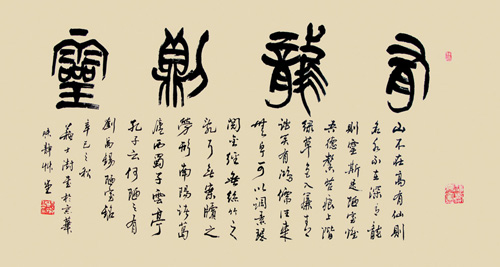 有龍則靈
山不在高有仙則
名水不在深有龍
則靈斯是陋室惟
吾德馨苔痕上階
綠草色入簾青
談笑有鴻儒往來
無白丁可以調素琴
閱金經無絲竹之
亂耳無案牘之
勞形南陽諸葛
廬西蜀子雲亭
孔子云何陋之有
劉禹錫陋室銘
辛巳之秋
蘇士澍書於京華